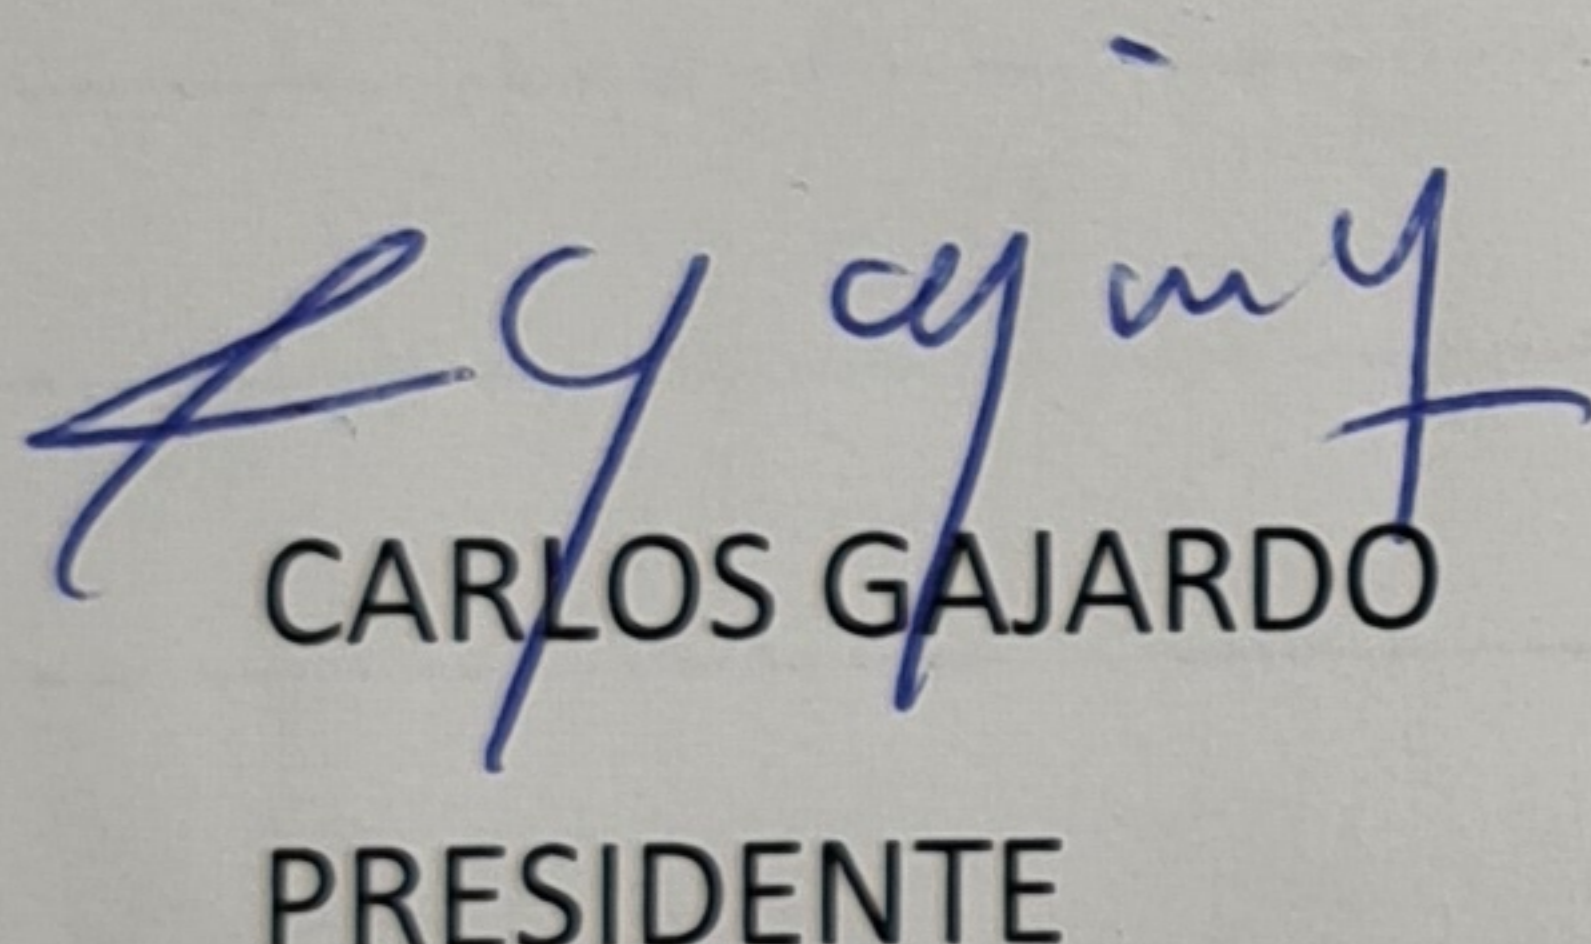 CARLOS GAJARDO
PRESIDENTE